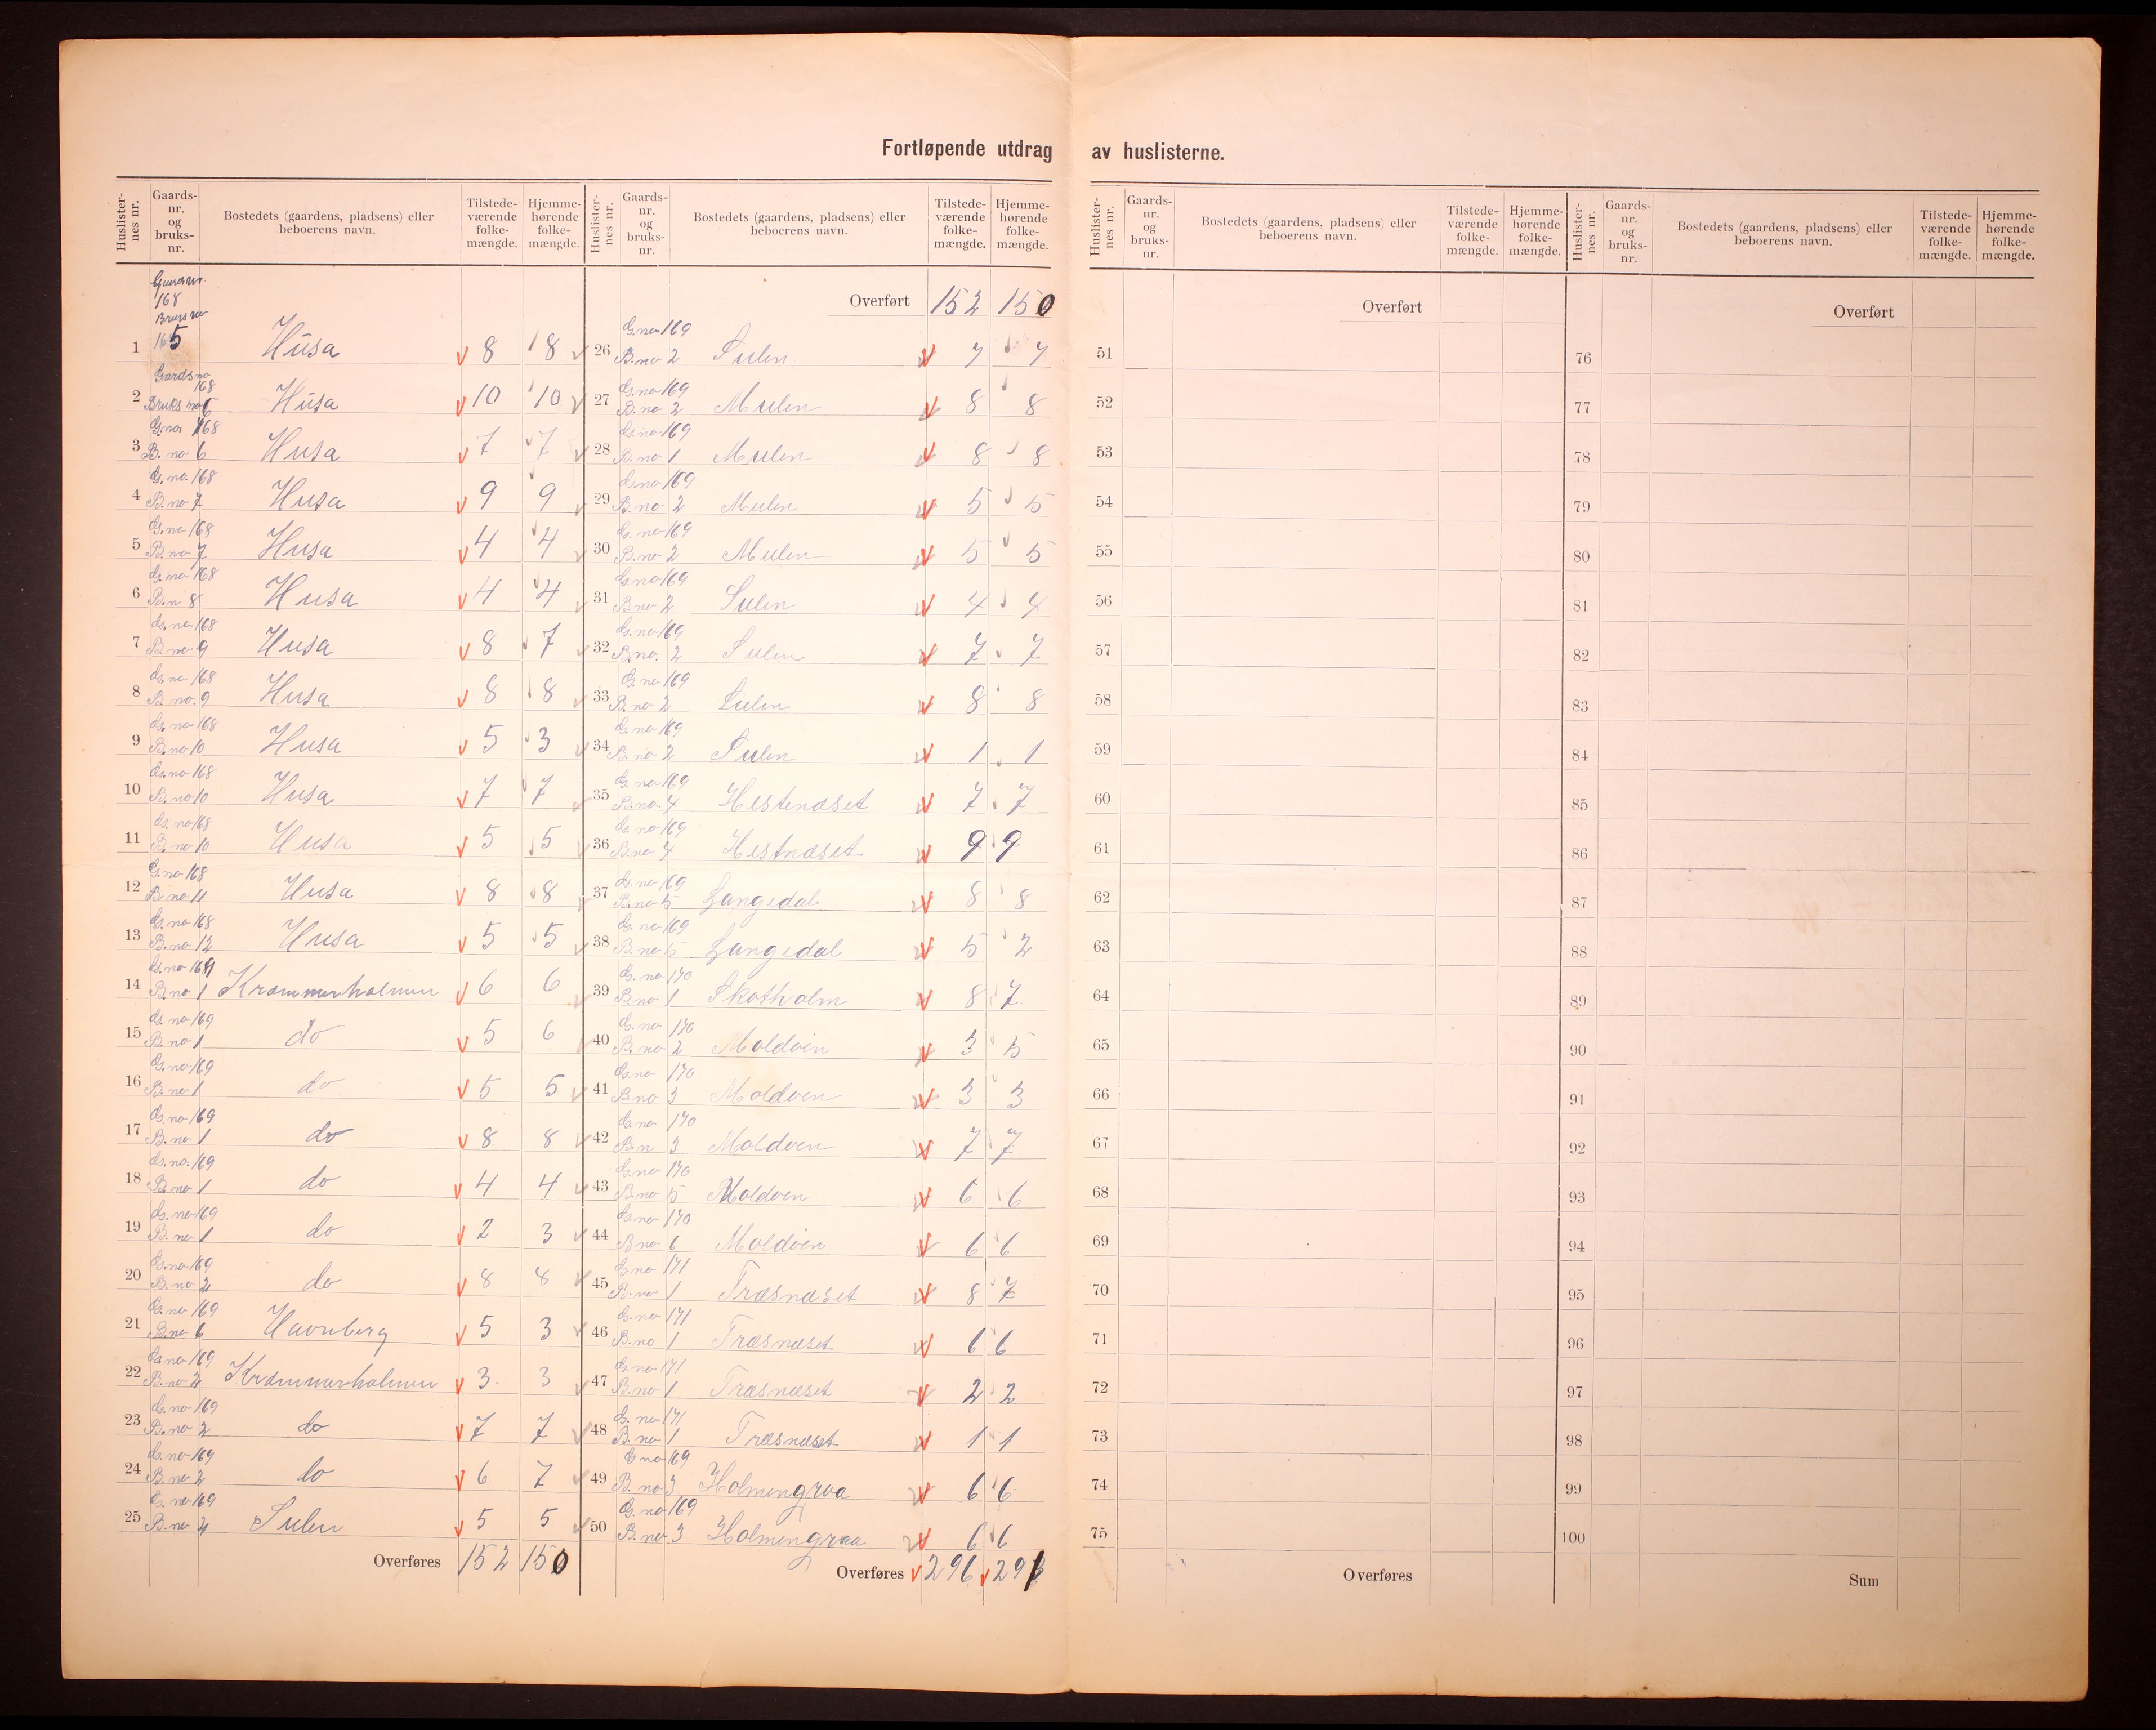 Fortløpende utdrag av huslisterne.
Huslister-nes nr. Gaards-nr. og bruks-nr. Bostedets (gaardens, pladsens) eller beboerens navn. Tilstede-værende folke-mængde. Hjemme-hørende folke-mængde.
Gaards nr. 168
Bruks nr
1 165 Husa 8 8
Gards no 168
2 Bruks no 6 Husa 10 10
G. no 168
3 B. no 6 Husa 7 7
G. no. 168
4 B. no 7 Husa 9 9
G. no 168
5 B. no 7 Husa 4 4
G. no 168
6 B. n 8 Husa 4 4
G. no 168
7 B. no 9 Husa 8 7
G. no 168
8 B. no. 9 Husa 8 8
G. no 168
9 B. no 10 Husa 5 3
G. no 168
10 B. no 10 Husa 7 7
G. no 168
11 B. no 10 Husa 5 5
G. no 168
12 B. no 11 Husa 8 8
G. no 168
13 B. no 12 Husa 5 5
G. no 169
14 B. no 1 Kræmmerholmen 6 6
G. no 169
15 B. no 1 do 5 6
G. no 169
16 B. no 1 do 5 5
G. no 169
17 B. no 1 do 8 8
G. no. 169
18 B. no 1 do 4 4
G. no 169
19 B. no 1 do 2 3
G. no 169
20 B. no 2 do 8 8
G. no 169
21 B. no 6 Havnberg 5 3
G. no 169
22 B. no 2 Kræmmerholmen 3 3
G. no 169
23 B. no 2 do 7 7
G. no 169
24 B. no 2 do 6 7
G. no 169
25 B. no 2 Sulen 5 5
Overføres 152 150
Huslister-nes nr. Gaards-nr. og bruks-nr. Bostedets (gaardens, pladsens) eller beboerens navn. Tilstede-værende folke-mængde. Hjemme-hørende folke-mængde.
Overført 152 150
G. no 169
26 B. no 2 Sulen 7 7
G. no 169
27 B. no 2 Mulen 8 8
G. no 169
28 B. no 1 Mulen 8 8
G. no 169
29 B. no 2 Mulen 5 5
G. no 169
30 B. no 2 Mulen 5 5
G. no 169
31 B. no 2 Sulen 4 4
G. no 169
32 B. no. 2 Sulen 7 7
G. no 169
33 B. no 2 Sulen 8 8
G. no 169
34 B. no 2 Sulen 1 1
G. no 169
35 B. no 4 Hestenæset 7 7
G. no 169
36 B. no 4 Hestnæset 9 9
G. no 169
37 B. no 5 Langedal 8 8
G. no 169
38 B. no 5 Langedal 5 2
G. no 170
39 B. no 1 Skatholm 8 7
G. no 170
40 B. no 2 Moldøen 3 5
G. no 170
41 B. no 3 Moldøen 3 3
G. no 170
42 B. n 3 Moldøen 7 7
G. no 170
43 B. no 5 Moldøen 6 6
G. no 170
44 B. no 6 Moldøen 6 6
G. no 171
45 B. no 1 Træsnæset 8 7
G. no 171
46 B. no 1 Træsnæset 6 6
G. no 171
47 B. no 1 Træsnæset 2 2
G. no 171
48 B. no 1 Træsnæset 1 1
G no 169
49 B. no 3 Holmengraa 6 6
G. no 169
50 B. no 3 Holmengraa 6 6
Overføres 296 291
Huslister-nes nr. Gaards-nr. og bruks-nr. Bostedets (gaardens, pladsens) eller beboerens navn. Tilstede-værende folke-mængde. Hjemme-hørende folke-mængde.
Overført
51
52
53
54
55
56
57
58
59
60
61
62
63
64
65
66
67
68
69
70
71
72
73
74
75
Overføres
Huslister-nes nr. Gaards-nr. og bruks-nr. Bostedets (gaardens, pladsens) eller beboerens navn. Tilstede-værende folke-mængde. Hjemme-hørende folke-mængde.
Overført
76
77
78
79
80
81
82
83
84
85
86
87
88
89
90
91
92
93
94
95
96
97
98
99
100
Sum